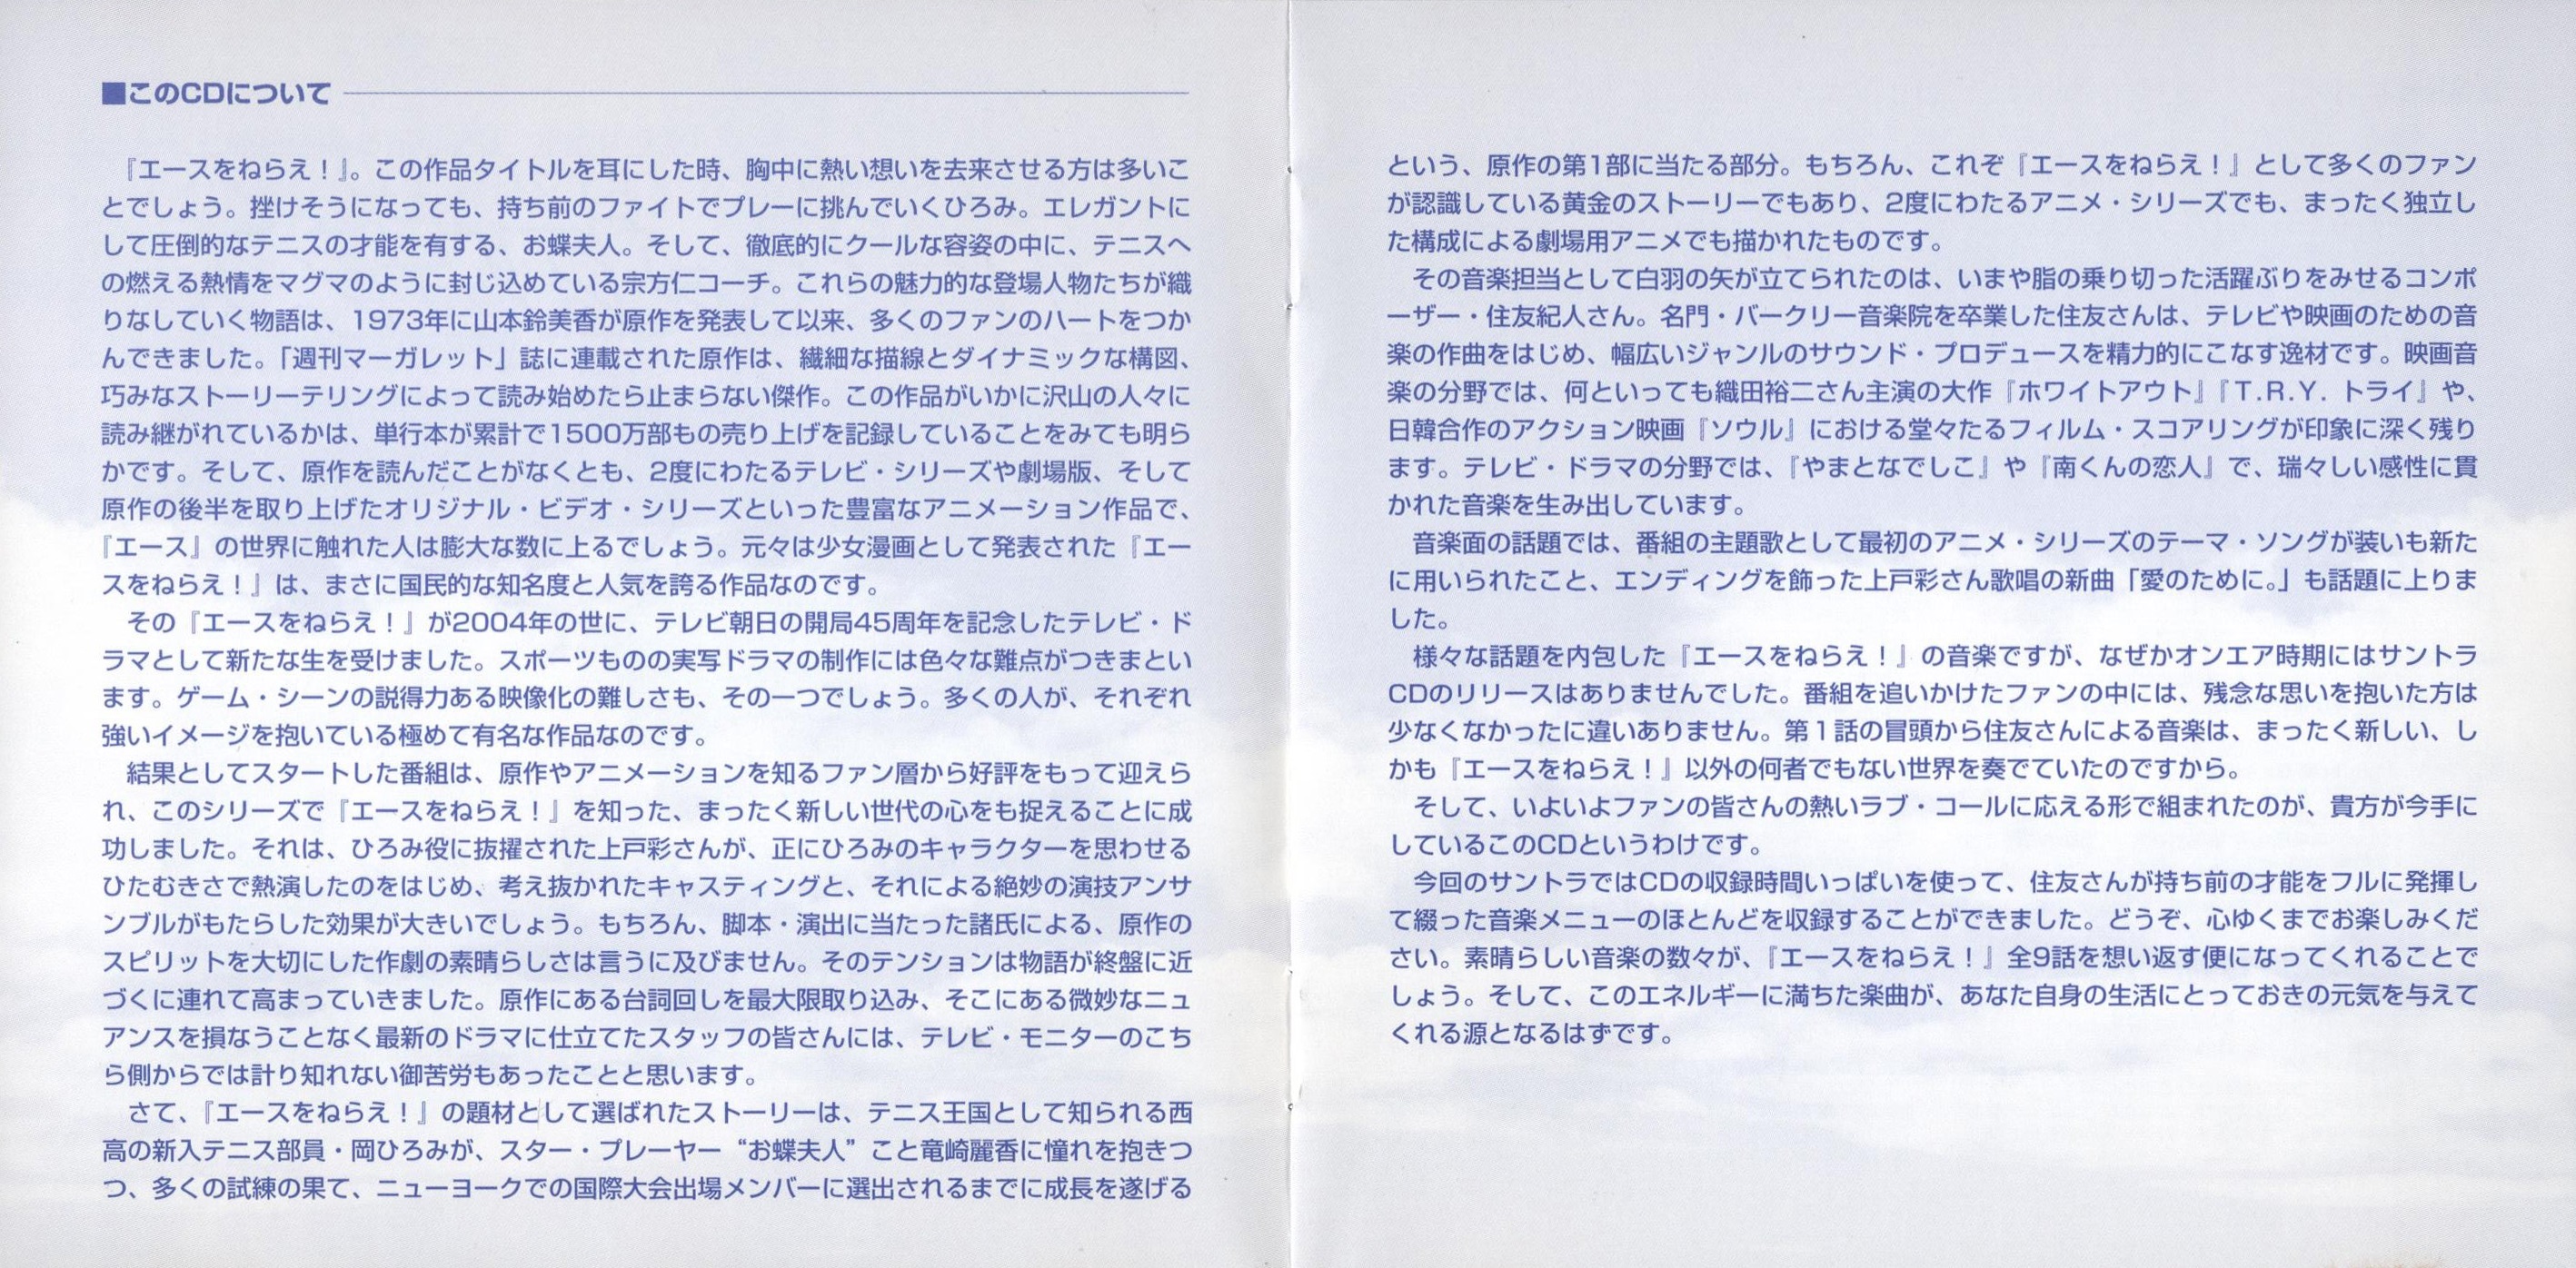 ■このCDについて
『エースをねらえ！』。この作品タイトルを耳にした時、胸中に熱い想いを去来させる方は多いこ
とでしょう。挫けそうになっても、持ち前のファイトでプレーに挑んでいくひろみ。エレガントに
して圧倒的なテニスの才能を有する、お蝶夫人。そして、徹底的にクールな容姿の中に、テニスへ
の燃える熱情をマグマのように封じ込めている宗方仁コーチ。これらの魅力的な登場人物たちが織
りなしていく物語は、1973年に山本鈴美香が原作を発表して以来、多くのファンのハートをつか
んできました。「週刊マーガレット」誌に連載された原作は、繊細な描線とダイナミックな構図、
巧みなストーリーテリングによって読み始めたら止まらない傑作。この作品がいかに沢山の人々に
読み継がれているかは、単行本が累計で1500万部もの売り上げを記録していることをみても明ら
かです。そして、原作を読んだことがなくとも、2度にわたるテレビ・シリーズや劇場版、そして
原作の後半を取り上げたオリジナル・ビデオ・シリーズといった豊富なアニメーション作品で、
『エース』の世界に触れた人は膨大な数に上るでしょう。元々は少女漫画として発表された『エー
スをねらえ！』は、まさに国民的な知名度と人気を誇る作品なのです。
その『エースをねらえ！』が2004年の世に、テレビ朝日の開局45周年を記念したテレビ・ド
ラマとして新たな生を受けました。スポーツものの実写ドラマの制作には色々な難点がつきまとい
ます。ゲーム・シーンの説得力ある映像化の難しさも、その一つでしょう。多くの人が、それぞれ
強いイメージを抱いている極めて有名な作品なのです。
結果としてスタートした番組は、原作やアニメーションを知るファン層から好評をもって迎えら
れ、このシリーズで『エースをねらえ！』を知った、まったく新しい世代の心をも捉えることに成
功しました。それは、ひろみ役に抜擢された上戸彩さんが、正にひろみのキャラクターを思わせる
ひたむきさで熱演したのをはじめ、考え抜かれたキャスティングと、それによる絶妙の演技アンサ
ンブルがもたらした効果が大きいでしょう。もちろん、脚本・演出に当たった諸氏による、原作の
スピリットを大切にした作劇の素晴らしさは言うに及びません。そのテンションは物語が終盤に近
づくに連れて高まっていきました。原作にある台詞回しを最大限取り込み、そこにある微妙なニュ
アンスを損なうことなく最新のドラマに仕立てたスタッフの皆さんには、テレビ・モニターのこち
ら側からでは計り知れない御苦労もあったことと思います。
さて、『エースをねらえ！』の題材として選ばれたストーリーは、テニス王国として知られる西
高の新入テニス部員・岡ひろみが、スター・プレーヤー“お蝶夫人”こと竜崎麗香に憧れを抱きつ
つ、多くの試練の果て、ニューヨークでの国際大会出場メンバーに選出されるまでに成長を遂げる
という、原作の第1部に当たる部分。もちろん、これぞ『エースをねらえ！』として多くのファン
が認識している黄金のストーリーでもあり、2度にわたるアニメ・シリーズでも、まったく独立し
た構成による劇場用アニメでも描かれたものです。
その音楽担当として白羽の矢が立てられたのは、いまや脂の乗り切った活躍ぶりをみせるコンポ
ーザー・住友紀人さん。名門・バークリー音楽院を卒業した住友さんは、テレビや映画のための音
楽の作曲をはじめ、幅広いジャンルのサウンド・プロデュースを精力的にこなす逸材です。映画音
楽の分野では、何といっても織田裕二さん主演の大作『ホワイトアウト』『T.R.Y. トライ』や、
日韓合作のアクション映画『ソウル』における堂々たるフィルム・スコアリングが印象に深く残り
ます。テレビ・ドラマの分野では、『やまとなでしこ』や『南くんの恋人』で、瑞々しい感性に貫
かれた音楽を生み出しています。
音楽面の話題では、番組の主題歌として最初のアニメ・シリーズのテーマ・ソングが装いも新た
に用いられたこと、エンディングを飾った上戸彩さん歌唱の新曲「愛のために。」も話題に上りま
した。
様々な話題を内包した『エースをねらえ！』の音楽ですが、なぜかオンエア時期にはサントラ
CDのリリースはありませんでした。番組を追いかけたファンの中には、残念な思いを抱いた方は
少なくなかったに違いありません。第1話の冒頭から住友さんによる音楽は、まったく新しい、し
かも『エースをねらえ！』以外の何者でもない世界を奏でていたのですから。
そして、いよいよファンの皆さんの熱いラブ・コールに応える形で組まれたのが、貴方が今手に
しているこのCDというわけです。
今回のサントラではCDの収録時間いっぱいを使って、住友さんが持ち前の才能をフルに発揮し
て綴った音楽メニューのほとんどを収録することができました。どうぞ、心ゆくまでお楽しみくだ
さい。素晴らしい音楽の数々が、『エースをねらえ！』全9話を想い返す便になってくれることで
しょう。そして、このエネルギーに満ちた楽曲が、あなた自身の生活にとっておきの元気を与えて
くれる源となるはずです。